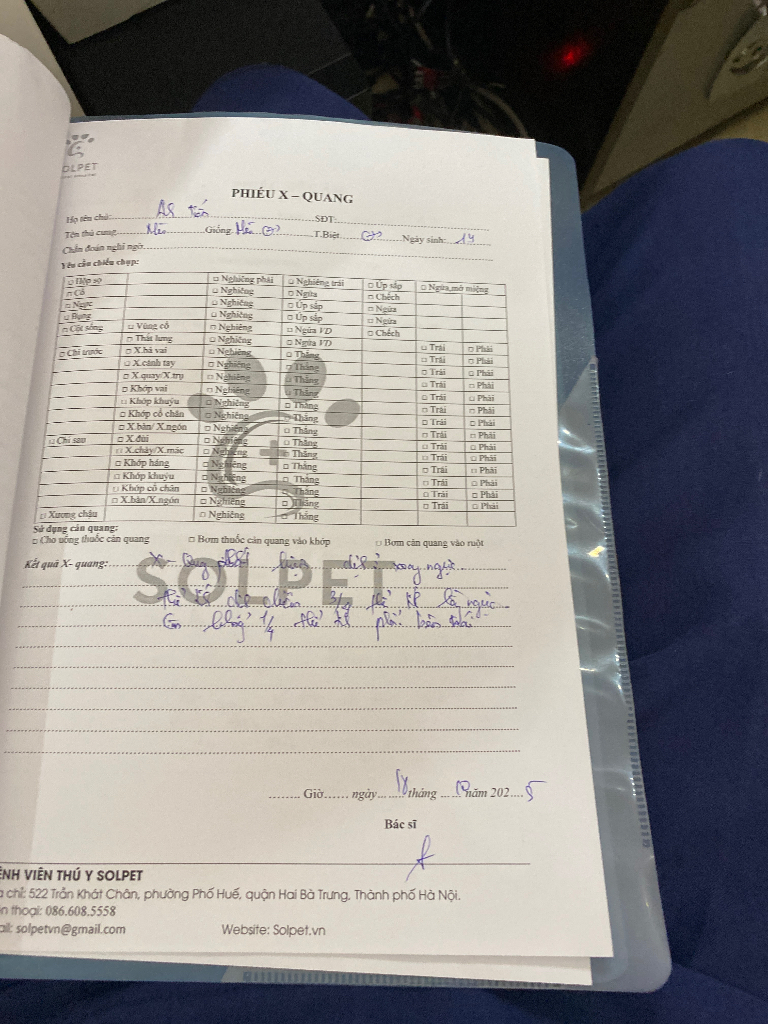 OLPET
PHIẾU X – QUANG
Họ tên chủ: SĐT:
Tên thú cưng: Mèo Giống: Mèo T.Biệt Ngày sinh: 14
Chẩn đoán nghi ngờ
Yêu cầu chiếu chụp:
□ Hộp sọ □ Nghiêng phải □ Nghiêng trái □ Úp sấp □ Ngửa, mở miệng
□ Cổ □ Nghiêng □ Ngửa □ Chếch
□ Ngực □ Nghiêng □ Úp sấp □ Ngửa
□ Bụng □ Nghiêng □ Úp sấp □ Ngửa
□ Cột sống □ Vùng cổ □ Nghiêng □ Ngửa VD □ Chếch
□ Thắt lưng □ Nghiêng □ Ngửa VD
□ Chi trước □ X.bả vai □ Nghiêng □ Thẳng □ Trái □ Phải
□ X.cánh tay □ Nghiêng □ Thẳng □ Trái □ Phải
□ X.quay/X.trụ □ Nghiêng □ Thẳng □ Trái □ Phải
□ Khớp vai □ Nghiêng □ Thẳng □ Trái □ Phải
□ Khớp khuỷu □ Nghiêng □ Thẳng □ Trái □ Phải
□ Khớp cổ chân □ Nghiêng □ Thẳng □ Trái □ Phải
□ X.bàn/X.ngón □ Nghiêng □ Thẳng □ Trái □ Phải
□ Chi sau □ X.đùi □ Nghiêng □ Thẳng □ Trái □ Phải
□ X.chày/X.mác □ Nghiêng □ Thẳng □ Trái □ Phải
□ Khớp háng □ Nghiêng □ Thẳng □ Trái □ Phải
□ Khớp khuỷu □ Nghiêng □ Thẳng □ Trái □ Phải
□ Khớp cổ chân □ Nghiêng □ Thẳng □ Trái □ Phải
□ X.bàn/X.ngón □ Nghiêng □ Thẳng □ Trái □ Phải
□ Xương chậu □ Nghiêng □ Thẳng
Sử dụng cản quang:
□ Cho uống thuốc cản quang □ Bơm thuốc cản quang vào khớp □ Bơm cản quang vào ruột
Kết quả X- quang: X- Quang phát hiện dịch xoang ngực
SOLPET
thể tích dịch chiếm 3/4 thể tích lồng ngực
Còn khoảng 1/4 thể tích phổi bên trái
Giờ ngày 18 tháng 10 năm 2025
Bác sĩ
ỆNH VIỆN THÚ Y SOLPET
a chỉ: 522 Trần Khát Chân, phường Phố Huế, quận Hai Bà Trưng, Thành phố Hà Nội.
n thoại: 086.608.5558
ail: solpetvn@gmail.com Website: Solpet.vn